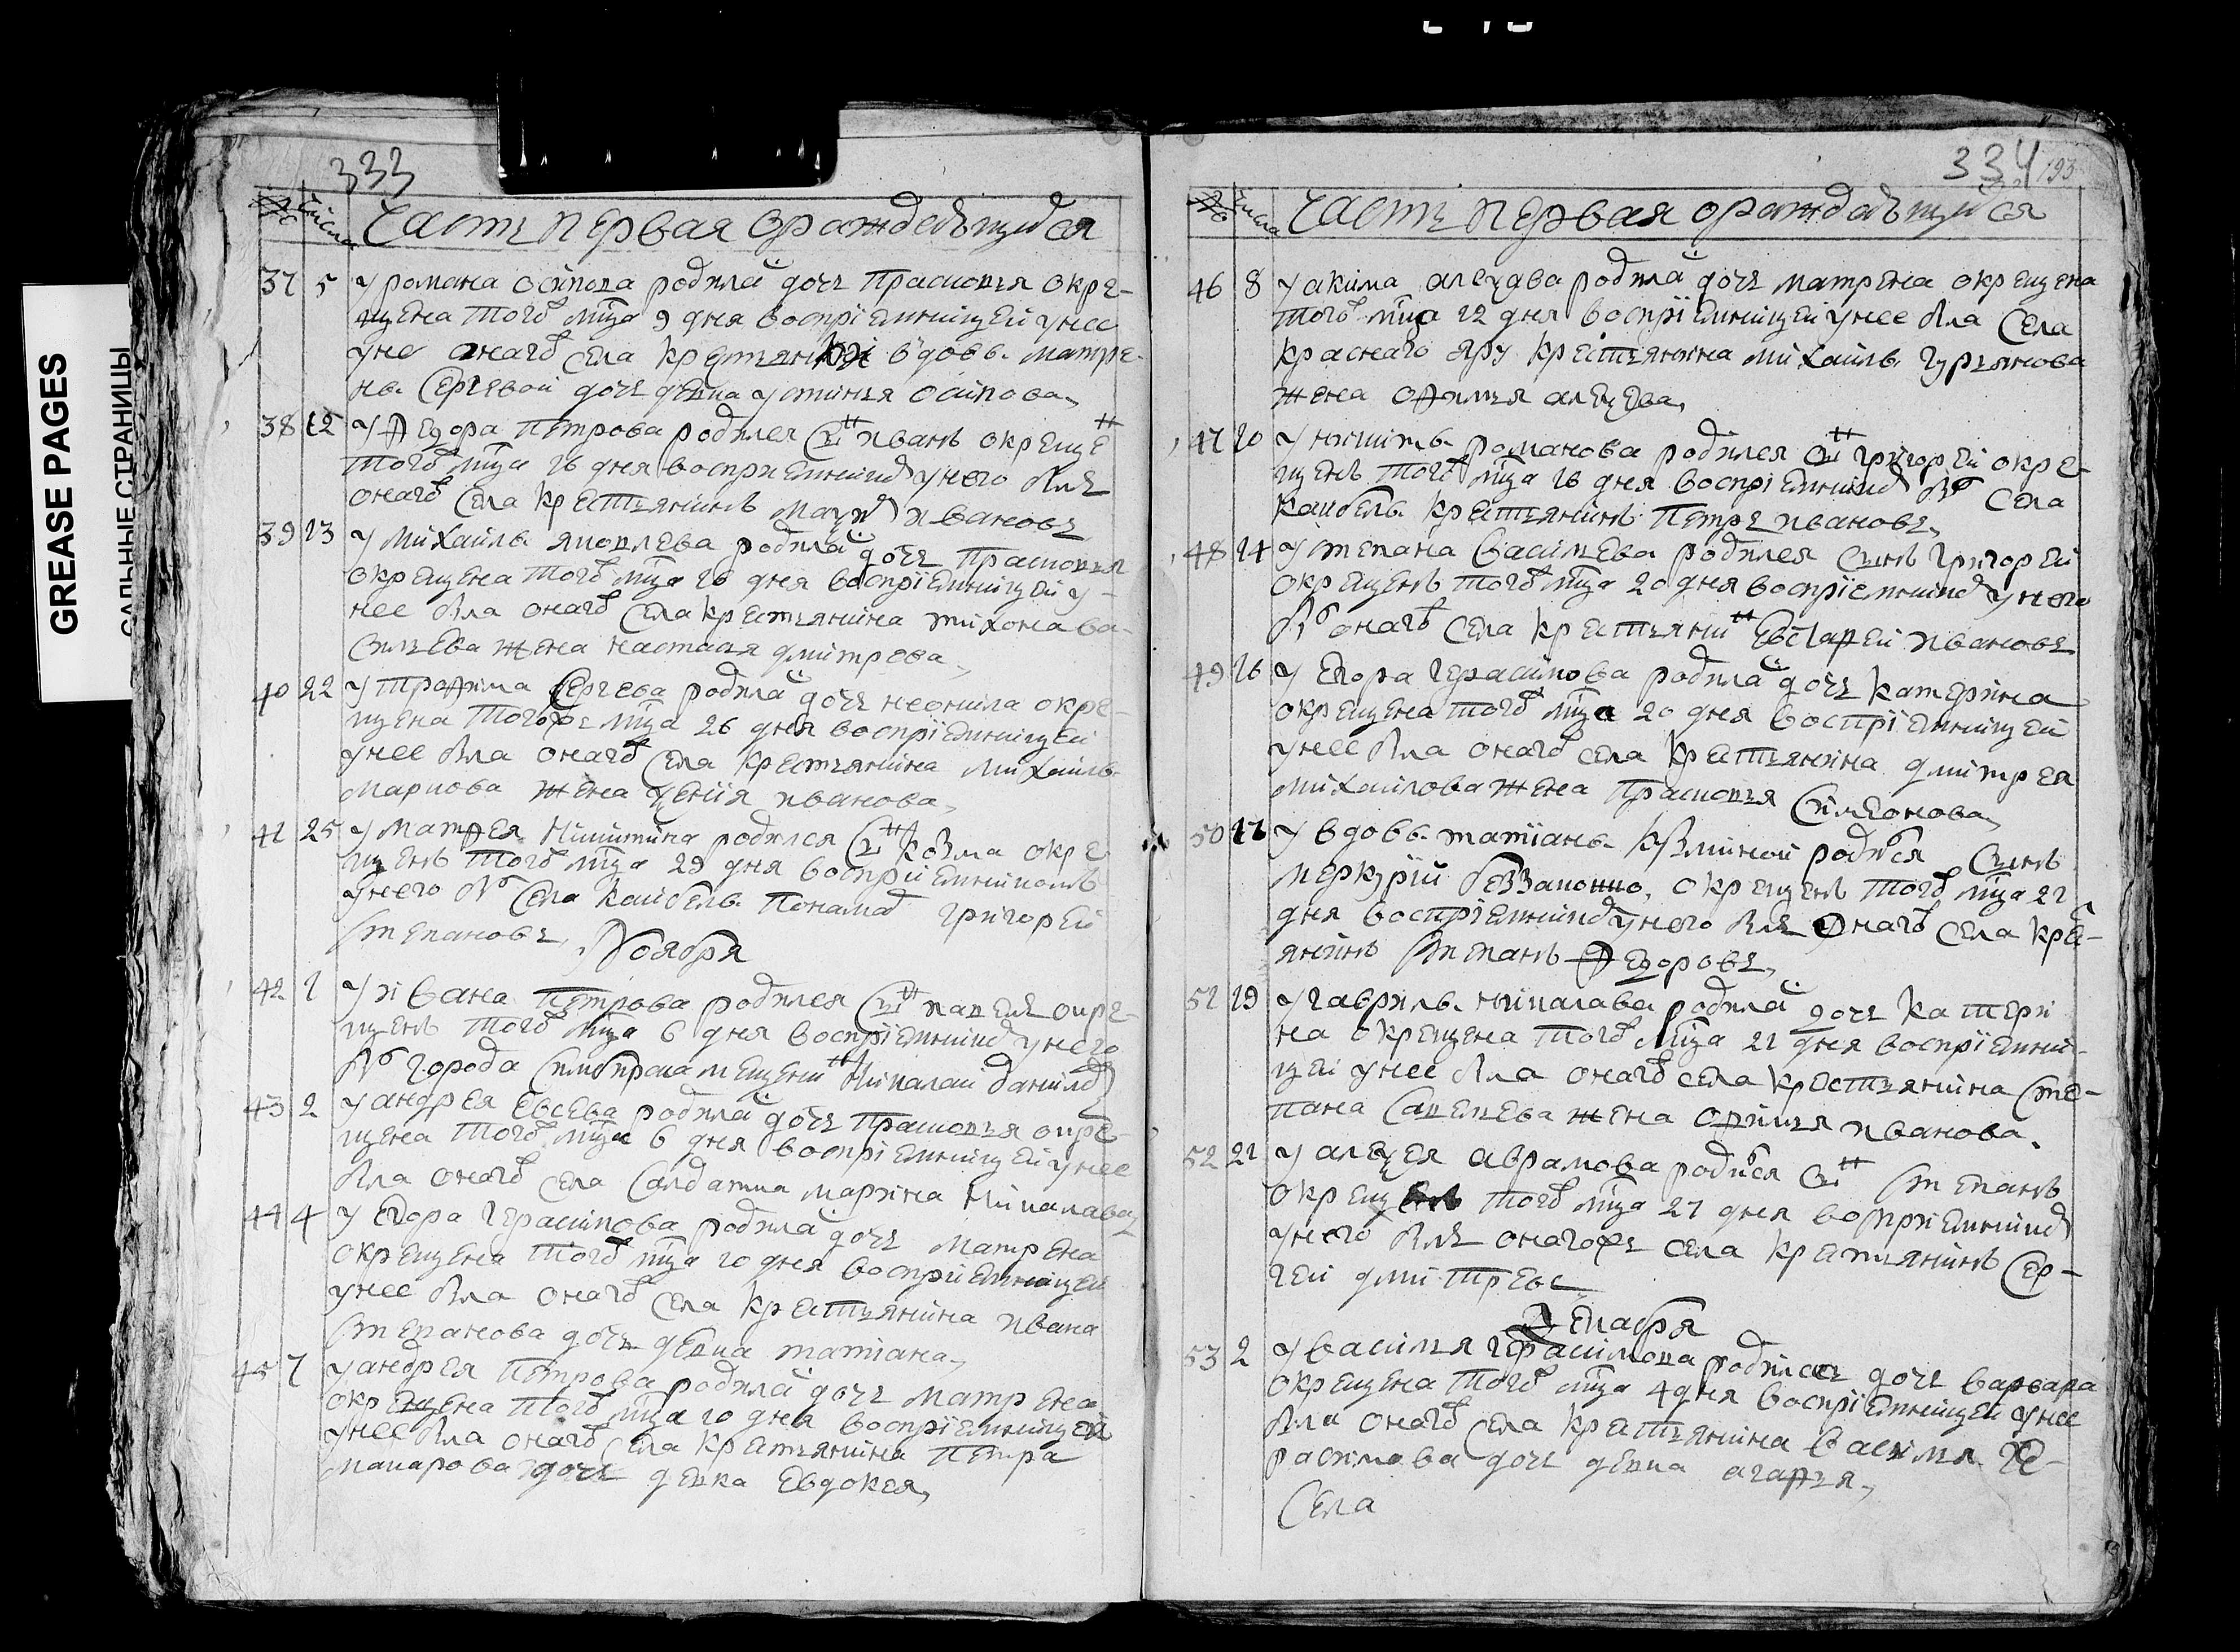 GREASE PAGES
САЛЬНЫЕ СТРАНИЦЫ
333
№ числа Часть первая ораждающихся
37 5 У романа осипова родила дочь Прасковья окре-
щена того мца 9 дня воспріемницей унее
уне онаго села крестьянскі вдовы матре-
ны Сергевой дочь девка устинья осипова
38 12 У Федора Петрова родился снъ иванъ окрещенъ
того мца 16 дня воспріемникъ у него былъ
онаго села крестьянинъ иановъ
39 13 У михаилы яковлева родила дочь Прасковья
окрещена того мца 16 дня воспріемницей у-
нее была онаго села крестьянина тихона ва-
сильева жена настасья дмитрева
40 22 У трафима Сергева родила дочь неонила окре-
щена тогоже мца 26 дня воспріемницей
унее была онаго села крестьянина михаилы
маркова жена ксенія иванова
41 25 У матфея никитина родился снъ козма окре
щенъ того мца 29 дня воспріемникомъ
у него бы села каибелы Понамарь григорей
степановъ
Ноября
42 1 У ивана Петрова родился снъ павелъ окре-
щенъ того мца 6 дня воспріемникъ унего
бы города симбирска мещенинъ николаи данилов
43 2 У андрея евсева родила дочь Прасковья окре-
щена того мца 6 дня воспріемницей унее
была онаго села салдатка марина николаева
44 4 У егора герасимова родила дочь матрена
окрещена того мца 10 дня воспріемницей
унее была онаго села крестьянина ивана
степанова дочь девка татіана
45 7 У андрея Петрова родила дочь матрена
окрещена того мца 10 дня воспріемницей
унее была онаго села крестьянина Петра
макарова дочь девка евдокея
334 193
№ числа Часть первая ораждающихся
46 8 У акима алеѯева родила дочь матрена окрещена
того мца 12 дня воспріемницей унее была села
краснаго яру крестьянина михаилы гурьянова
жена офимья алеѯева
47 10 У никиты романова родился снъ григорей окре-
щенъ того мца 16 дня воспріемникъ бы села
каибелы крестьянинъ Петръ ивановъ
48 14 У степана васильева родился сынъ григорей
окрещенъ того мца 20 дня воспріемникъ у него
бы онаго села крестьянинъ евстафей ивановъ
49 16 У егора герасимова родила дочь катерина
окрещена того мца 20 дня воспріемницей
унее была онаго села крестьянина дмитрея
михаилова жена Прасковья симеонова
50 17 У вдовы татіаны кузминой родися сынъ
меркурій беззаконно, окрещенъ того мца 22
дня воспріемникъ у него былъ онаго села крес-
янинъ степанъ Федоровъ
51 19 У гаврилы николава родила дочь катери
на окрещена того мца 21 дня воспріемни-
цей унее была онаго села крестьянина сте-
пана савельева жена офимья иванова
52 21 У алеѯея аврамова родися снъ степанъ
окрещенъ того мца 27 дня воспріемникъ
унего былъ онагоже села крестьянинъ Сер-
гей дмитревъ
Декабря
53 2 У василья герасимова родилась дочь варвара
окрещена того мца 4 дня воспріемницей унее
была онаго села крестьянина василья ге-
расимова дочь девка агафья
Села